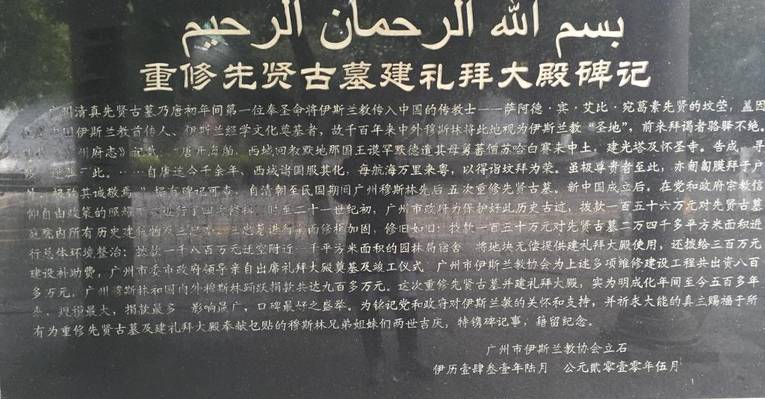 بسم الله الرحمان الرحيم
重修先贤古墓建礼拜大殿碑记
广州清真先贤古墓乃唐初年间第一位奉圣命将伊斯兰教传入中国的传教士——萨阿德·宾·艾比·宛葛素先贤的坟茔，盖因
中国伊斯兰教首传人、伊斯兰经学文化奠基者，故千百年来中外穆斯林将此地视为伊斯兰教“圣地”，前来拜谒者骆驿不绝。
州府志》记载：“唐开海舶，西域回教默地那国王谟罕默德遣其母舅蕃僧苏哈白赛来中土，建光塔及怀圣寺。告成，寻
此。……自唐迄今千余年，西域诸国服其化，每航海万里来粤，以得诣坟拜为荣。虽极尊贵者至此，亦匍匐膜拜于户
外，极致其诚敬焉。”据有碑记可查，自清朝至民国期间广州穆斯林先后五次重修先贤古墓。新中国成立后，在党和政府宗教信
仰自由政策的照耀下，进行了四次修科。时至二十一世纪初，广州市政府为保护好此历史古迹，拨款一百五十六万元对先贤古墓
庭院内所有历史建筑物进行全面修葺加固，修旧如旧；拨款一百三十万元对先贤古墓二万四千多平方米面积进
行总体环境整治；拨款一千八百万元迁空附近一千平方米面积的园林局宿舍，将地块无偿提供建礼拜大殿使用，还拨给三百万元
建设补助费，广州市委市政府领导亲自出席礼拜大殿奠基及竣工仪式。广州市伊斯兰教协会为上述多项维修建设工程共出资八百
多万元，广州穆斯林和国内外穆斯林踊跃捐款共达九百多万元。这次重修先贤古墓并建礼拜大殿，实为明成化年间至今五百多年
来，规模最大，捐款最多，影响最广，口碑最好之盛举。为铭记党和政府对伊斯兰教的关怀和支持，并祈求大能的真主赐福于所
有为重修先贤古墓及建礼拜大殿奉献乜贴的穆斯林兄弟姐妹们两世吉庆，特镌碑记事，籍留纪念。
广州市伊斯兰教协会立石
伊历壹肆叁壹年陆月　公元贰零壹零年伍月